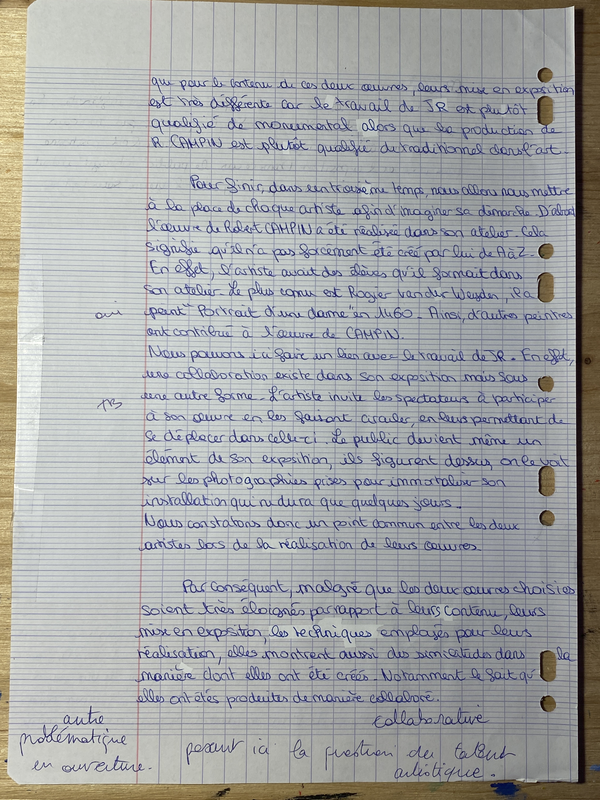 que pour le contenu de ces deux œuvres, leurs mise en exposition
est très différente car le travail de JR est plutôt
qualifié de monumental alors que la production de
R. CAMPIN est plutôt qualifié de traditionnel dans l'art.
Pour finir, dans un troisième temps, nous allons nous mettre
à la place de chaque artiste afin d'imaginer sa démarche. D'abord
l'œuvre de Robert CAMPIN a été réalisée dans son atelier. Cela
signifie qu'il n'a pas forcément été créé par lui de A à Z.
En effet, l'artiste avait des élèves qu'il formait dans
son atelier. Le plus connu est Rogier van der Weyden, il a
oui
peint "Portrait d'une dame en 1460. Ainsi, d'autres peintres
ont contribué à l'œuvre de CAMPIN.
Nous pouvons ici faire un lien avec le travail de JR. En effet,
une collaboration existe dans son exposition mais sous
TB
une autre forme. L'artiste invite les spectateurs à participer
à son œuvre en les faisant circuler, en leurs permettant de
se déplacer dans celle-ci. Le public devient même un
élément de son exposition, ils figurent dessus, on le voit
sur les photographies prises pour immortaliser son
installation qui ne dura que quelques jours.
Nous constatons donc un point commun entre les deux
artistes lors de la réalisation de leurs œuvres.
Par conséquent, malgré que les deux œuvres choisies
soient très éloignés par rapport à leurs contenu, leurs
mise en exposition, les techniques employés pour leurs
réalisation, elles montrent aussi des similitudes dans la
manière dont elles ont été créés. Notamment le fait qu'
elles ont étés produites de manière collaboré.
collaborative
autre
problématique
en ouverture.
posant ici la question du talent
artistique.